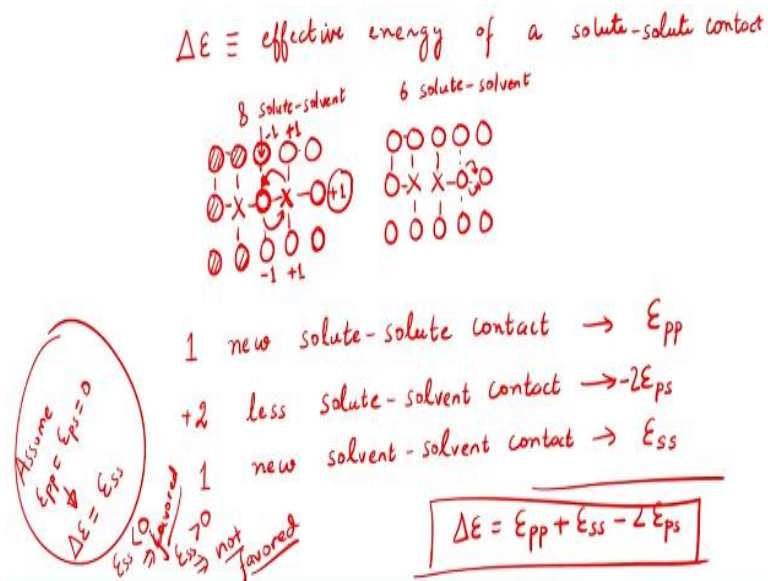 Δε ≡ effective energy of a solute-solute contact
8 solute-solvent
6 solute-solvent
-1 +1
+1
-1 +1
1 new solute-solute contact → εpp
+2 less solute-solvent contact → -2εps
1 new solvent-solvent contact → εss
Assume
εpp = εps = 0
Δε = εss
εss < 0
⇒ favored
εss > 0
⇒ not
favored
Δε = εpp + εss - 2εps